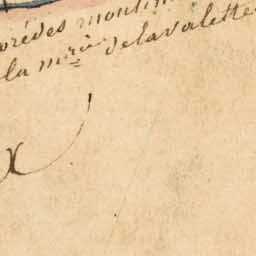 prédes moulin
la m.rie delavalette